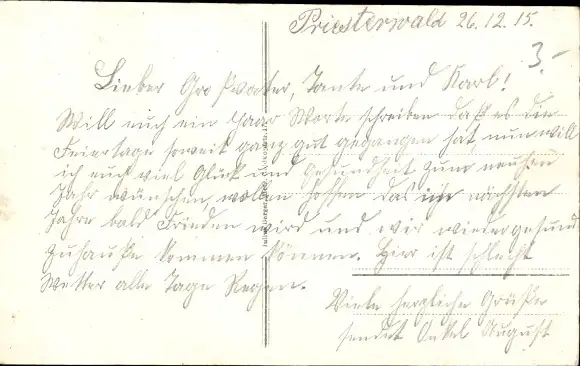 Priesterwald 26.12.15.
3.-
Lieber Großvater, Tante und Karl!
Will euch ein Paar Worte schreiben daß es die
Feiertage soweit ganz gut gegangen hat nun will
ich euch viel Glück und Gesundheit zum neuhen
Jahr wünschen, wollen hoffen das im nächsten
Jahre bald Frieden wird und wir wieder gesund
zuhauße kommen können. Hier ist schlecht
Wetter alle Tage Regen.
Viele herzliche Grüße
sendet Onkel August